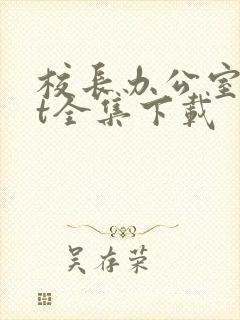 校长办公室
t全集下载
吴存荣